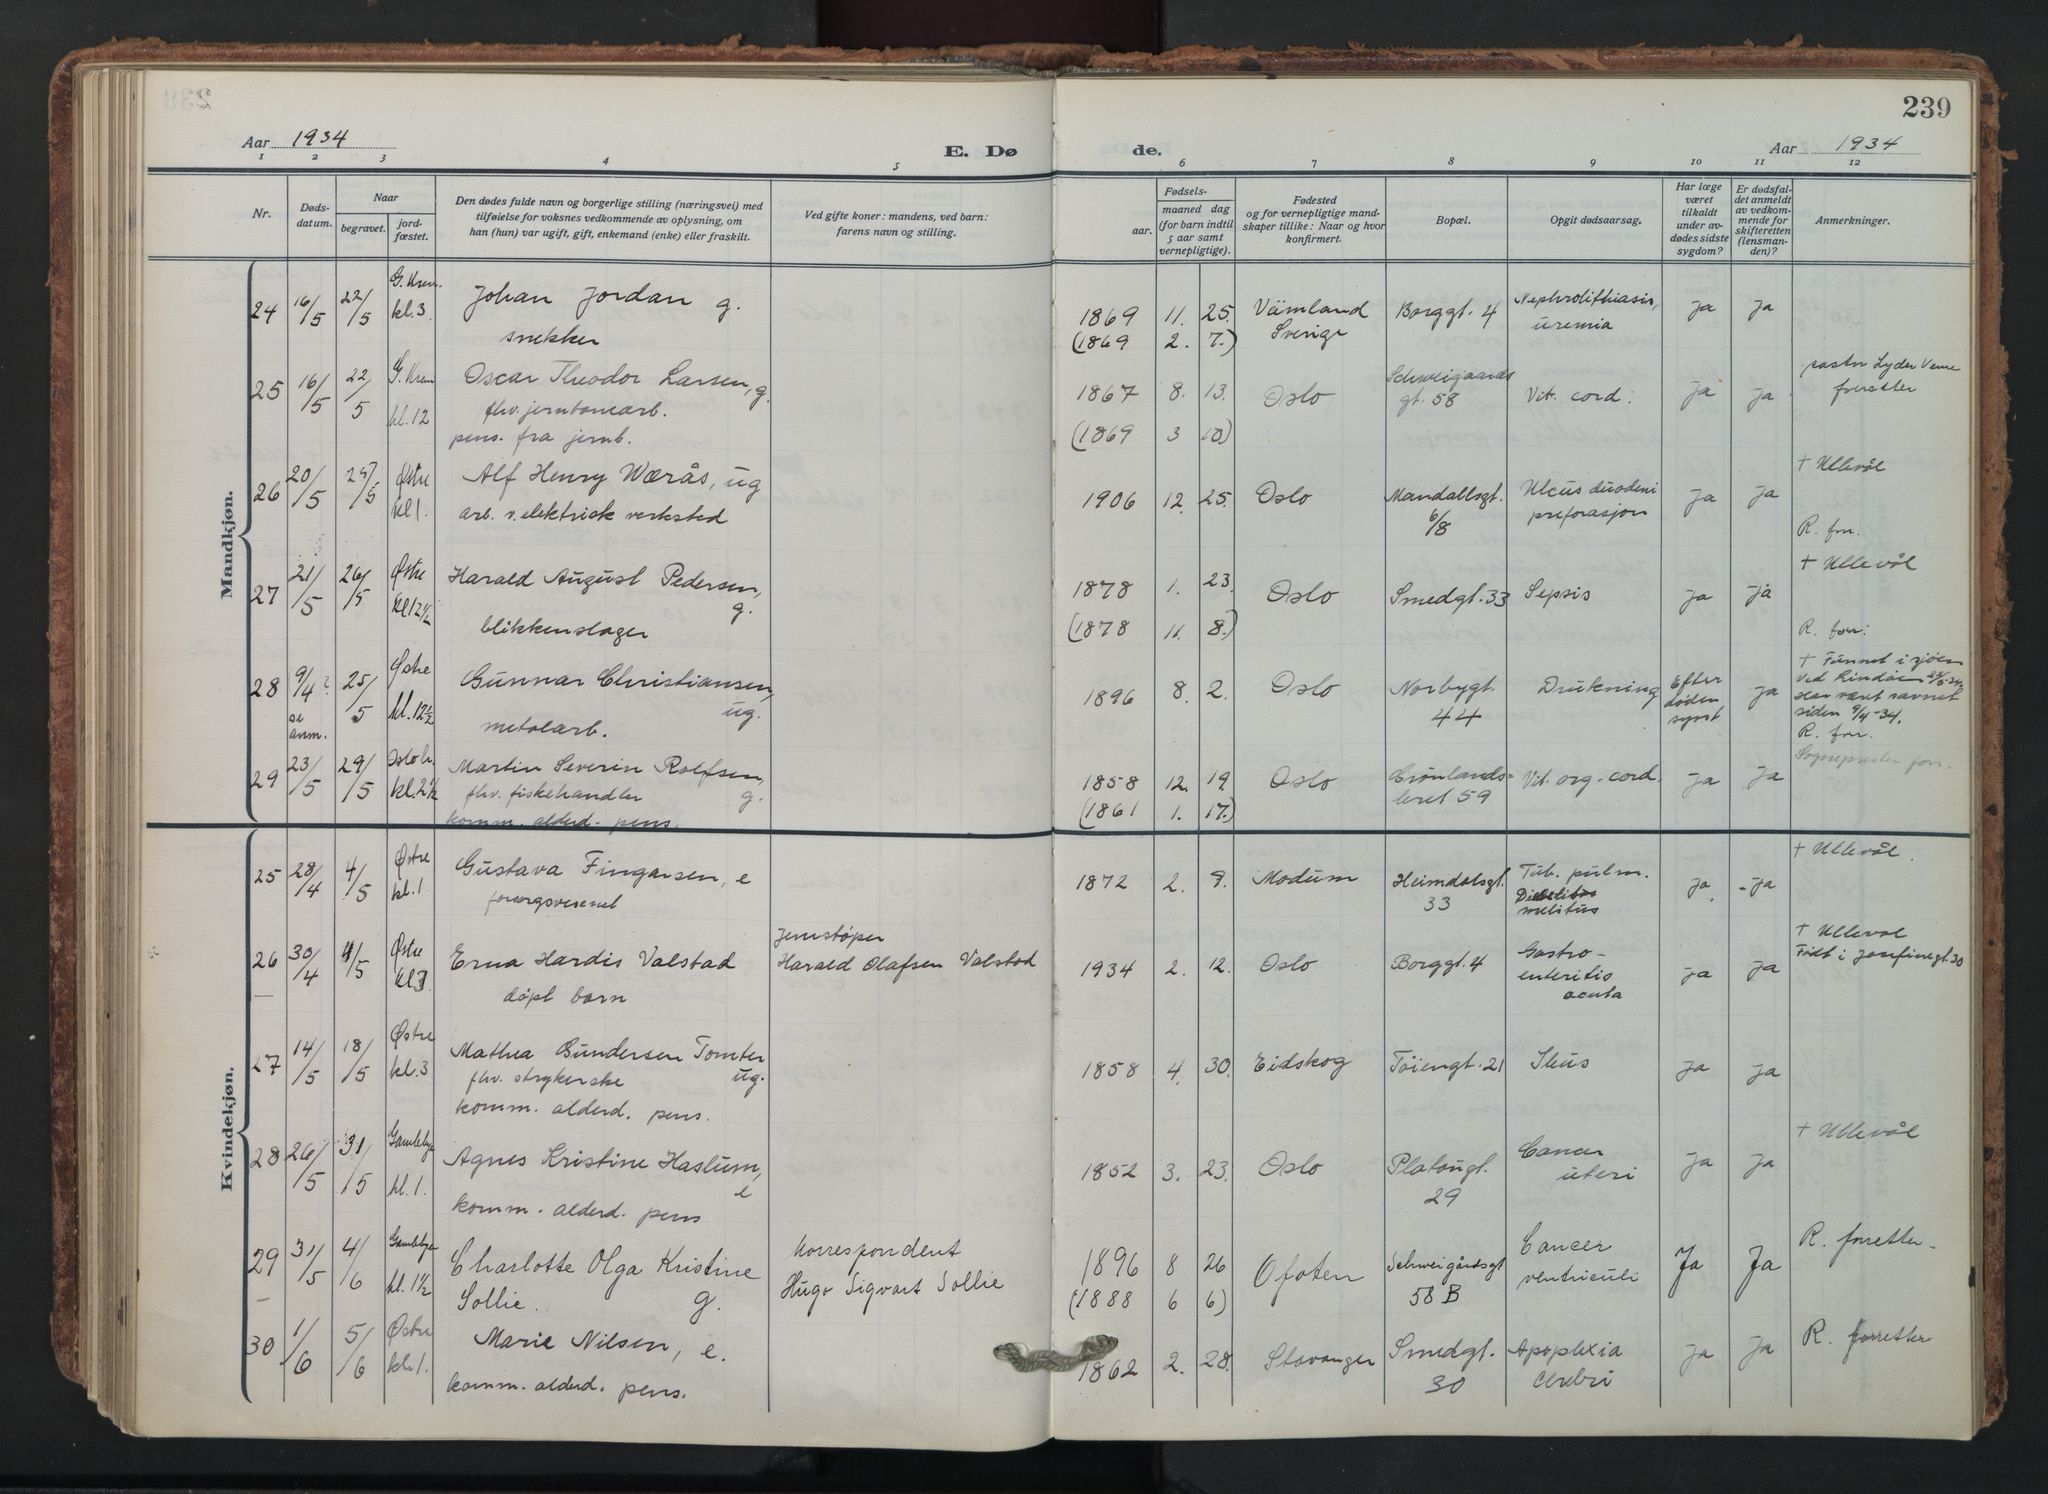 239
Aar 1934
E. Dø
de.
Aar 1934
1 2 3 4 5 6 7 8 9 10 11 12
Nr.
Døds-
datum.
Naar
begravet.
jord-
fæstet.
Den dødes fulde navn og borgerlige stilling (næringsvei) med
tilføielse for voksnes vedkommende av oplysning, om
han (hun) var ugift, gift, enkemand (enke) eller fraskilt.
Ved gifte koner: mandens, ved barn:
farens navn og stilling.
Fødsels-
aar.
maaned dag
(for barn indtil
5 aar samt
vernepligtige).
Fødested
og for vernepligtige mand-
skaper tillike: Naar og hvor
konfirmert.
Bopæl.
Opgit dødsaarsag.
Har læge
været
tilkaldt
under av-
dødes sidste
sygdom?
Er dødsfal-
det anmeldt
av vedkom-
mende for
skifteretten
(lensman-
den)?
Anmerkninger.
Mandkjøn.
24 16/5 22/5 G. Krem. kl. 3 Johan Jordan g.
snekker
1869 11. 25. Värmland Borggt. 4 Nephrolithiasis, ja ja
(1869 2. 7.) Sverige uremia
25 16/5 22/5 G. Krem kl. 12 Oscar Theodor Larsen, g.
fhv. jernbanearb.
pens. fra jernb.
1867 8. 13. Oslo Schweigaards gt. 58 Vit. cord. ja ja pastor Lyder Verne
forretter
(1869 3 10)
26 20/5 25/5 Østre kl 1. Alf Henry Wærås, ug
arb. v. elektrisk verksted
1906 12. 25. Oslo Mandallsgt. 6/8 Ulcus duodeni ja ja + Ullevål
preforasjon
R. forr.
27 21/5 26/5 Østre kl 12½ Harald August Pedersen,
g.
blikkenslager
1878 1. 23. Oslo Smedgt. 33 Sepsis ja ja + Ullevål
(1878 11. 8.) R. forr.
28 9/4? se anm. 25/5 Østre kl. 12½ Gunnar Christiansen,
ug.
metalarb.
1896 8. 2. Oslo Norbygt. 44 Drukning Efter døden synt ja + Funnet i sjøen
ved Lindøen
har vært savnet
siden 9/4-34.
R. forr.
29 23/5 29/5 Oslo h. kl. 2½ Martin Severin Rolfsen,
fhv. fiskehandler g.
komm. alderd. pens.
1858 12. 19. Oslo Grønlands- Vit. org. cord. ja ja Sogneprester forr.
(1861 1. 17.) leret 59
Kvindekjøn.
25 28/4 4/5 Østre kl. 1 Gustava Fingarsen, e
forsorgsvesenet
1872 2. 9. Modum Heimdalsgt. 33 Tub. pulm. ja ja + Ullevål.
melitus
26 30/4 4/5 Østre kl 3. Erna Hardis Valstad
døpt barn
Jernstøper
Harald Olafsen Valstad
1934 2. 12. Oslo Borggt. 4 Gastro- ja ja + Ullevål
enteritis
acuta
Født i Josefinegt. 30
27 14/5 18/5 Østre kl. 3 Mathea Gundersen Tomter
fhv. strykerske ug.
komm. alderd. pens.
1858 4. 30. Eidskog Töiengt. 21 Ileus ja ja
28 26/5 31/5 Gamlebye kl. 1. Agnes Kristine Haslum,
e
komm. alderd. pens
1852 3. 23. Oslo Platöugt. 29 Cancer ja ja + Ullevål
uteri
29 31/5 4/6 Gamlebyen kl. 1½ Charlotte Olga Kristine
Sollie. g.
Korrespondent
Hugo Sigvart Sollie
1896 8 26 Ofoten Schweigårdsgt 58 B Cancer Ja Ja R. forretter.
(1888 6 6) ventriculi
30 1/6 5/6 Østre kl. 1. Marie Nilsen, e.
komm. alderd. pens.
1862 2. 28. Stavanger Smedgt. 30 Apoplexia ja ja R. forretter
cerebri